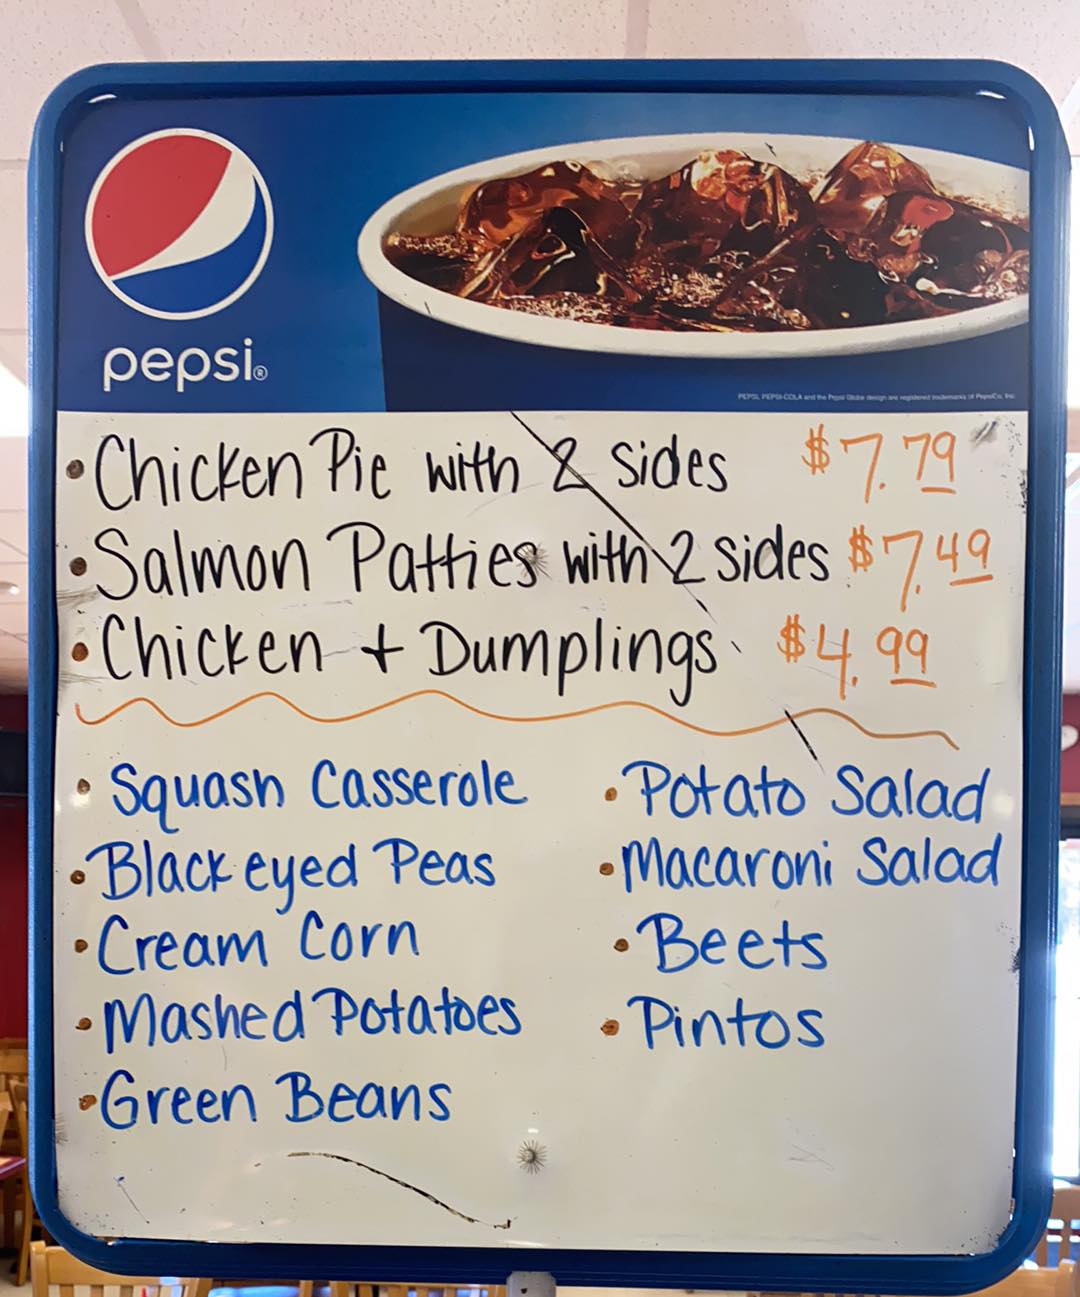 pepsi®
PEPSI, PEPSI-COLA and the Pepsi Globe design are registered trademarks of PepsiCo, Inc.
• Chicken Pie with 2 sides $7.79
• Salmon Patties with 2 sides $7.49
• Chicken + Dumplings $4.99
• Squash Casserole
• Black eyed Peas
• Cream Corn
• Mashed Potatoes
• Green Beans
• Potato Salad
• Macaroni Salad
• Beets
• Pintos